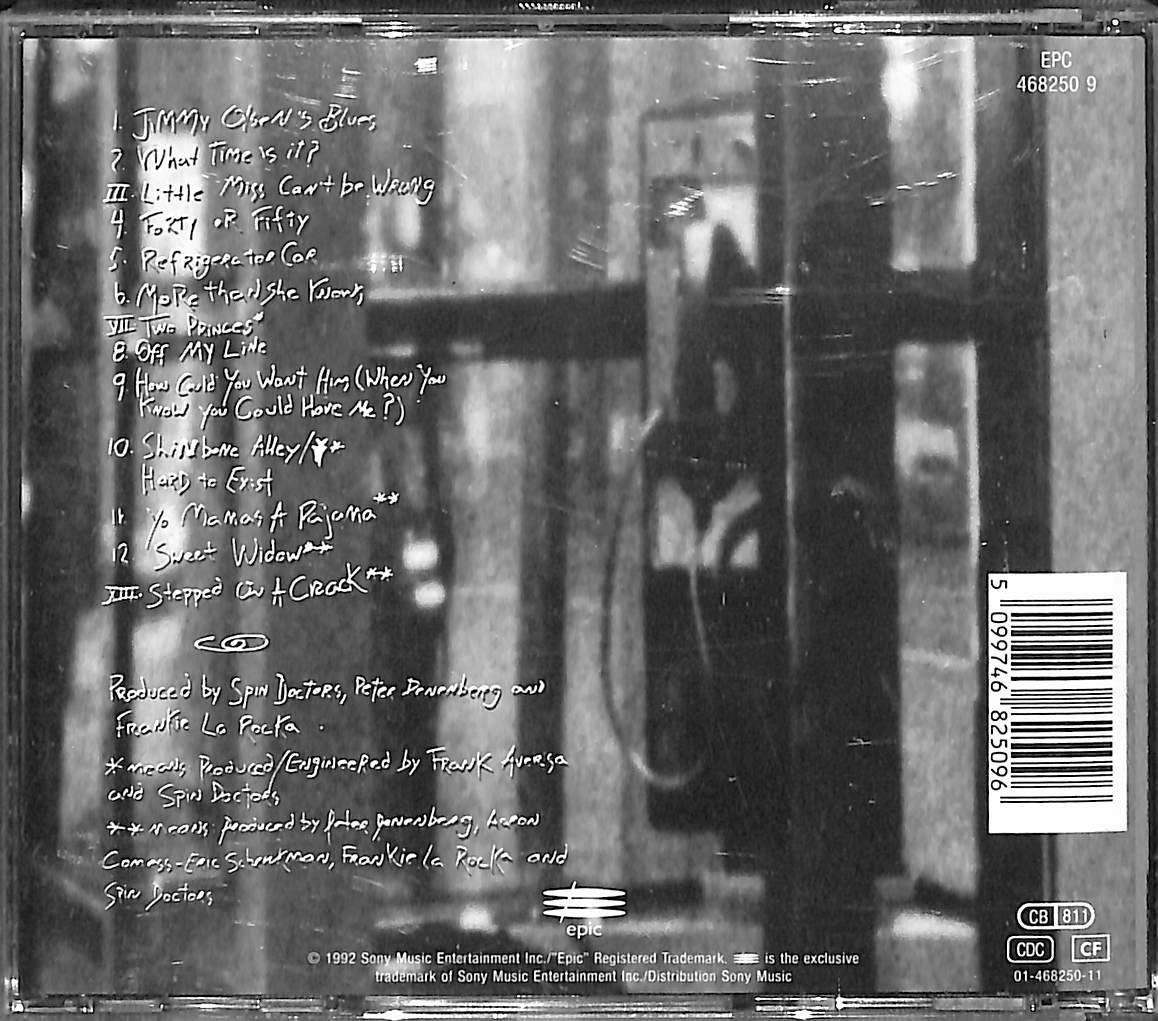 EPC
468250 9
1. Jimmy Olsen's Blues
2. What Time is it?
III. Little Miss Can't be Wrong
4. Forty or Fifty
5. Refrigerator Car
6. More than She Knows
VII. Two Princes*
8. Off My Line
9. How Could You Want Him (When You
Know you Could Have Me?)
10. Shinbone Alley/**
Hard to Exist
11. Yo Mamas A Pajama**
12. Sweet Widow**
XIII. Stepped On A Crack**
Produced by Spin Doctors, Peter Denenberg and
Frankie La Rocka .
* means Produced/Engineered by Frank Aversa
and Spin Doctors
** means produced by Peter Denenberg, Aaron
Comess-Eric Schenkman, Frankie La Rocka and
Spin Doctors
5 099746 825096
epic
CB 811
CDC CF
01-468250-11
© 1992 Sony Music Entertainment Inc./"Epic" Registered Trademark. is the exclusive
trademark of Sony Music Entertainment Inc./Distribution Sony Music